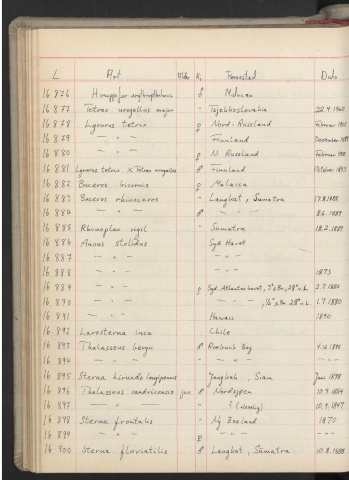 L Art Alder K. Funnested Dato
16 876 Houppifer erythrophthalmus ♂ Malacca
16 877 Tetrao urogallus major " Tsjekkoslovakia 22.4.1960
16 878 Lyrurus tetrix ♀ Nord-Russland Februar
16 879 — " — Finnland Desember
16 880 — " — ♀ N. Russland Februar
16 881 Lyrurus tetrix x Tetrao urogallus ♂ Finnland Oktober 1893
16 882 Buceros bicornis ♀ Malacca
16 883 Buceros rhinoceros " Langkat, Sumatra 1888
16 884 — " — ♂ — " — 1889
16 885 Rhinoplax vigil " Sumatra 18.2.1889
16 886 Anous stolidus Syd Havet
16 887 — " — — " —
16 888 — " — — " — 1873
16 889 — " — ♀ Syd. Atlanterhavet, 3° s.Br, 28° v.L. 2.7.1880
16 890 — " — — " —, ½° s.Br. 28° v.L. 1.7.1880
16 891 — " — Hawaii 1890
16 892 Larosterna inca Chile
16 893 Thalasseus bergii ♂ Roebuck Bay 4.12.1895
16 894 — " — — " — — " —
16 895 Sterna hirundo longipennis Jungkah, Siam Juni 1898
16 896 Thalasseus sandvicensis juv. ♂ Nordsjøen 10.9.1884
16 897 — " — " ? 10.9.1847
16 898 Sterna frontalis " Ny Zeeland 1870
16 899 — " — — " — — " —
16 900 Sterna fluviatilis ♂ Langkat, Sumatra 10.8.1888